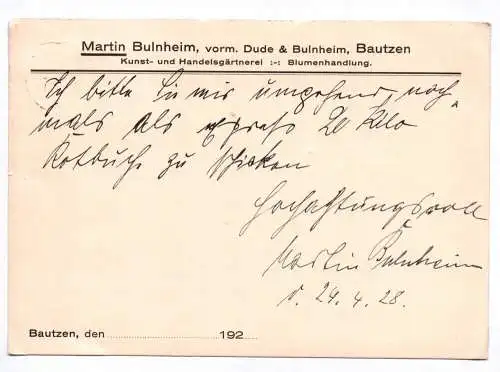 Martin Bulnheim, vorm. Dude & Bulnheim, Bautzen
Kunst- und Handelsgärtnerei :-: Blumenhandlung.
Ich bitte Sie mir umgehend noch-
mals als expreß 20 Kilo
Rotbuche zu schicken
Hochachtungsvoll
Martin Bulnheim
d. 24.4.28.
Bautzen, den 192